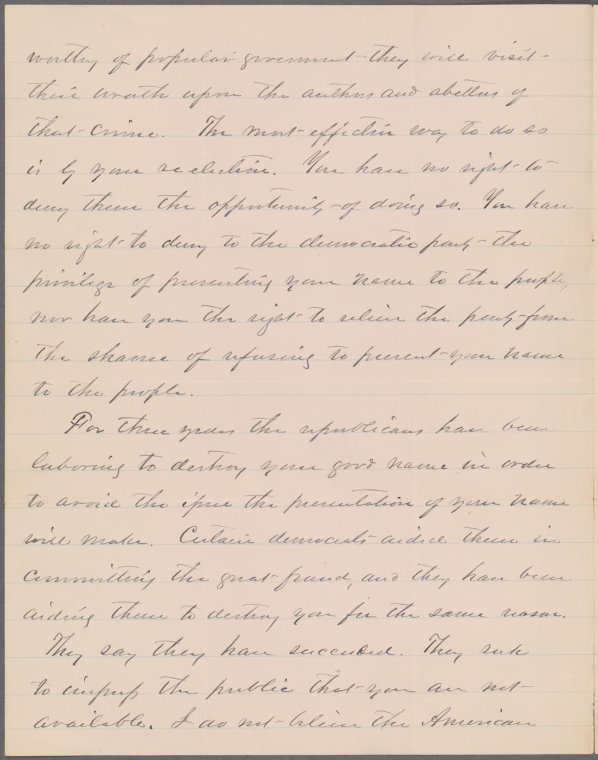 worthy of popular government they will visit
their wrath upon the authors and abettors of
that crime. The most effective way to do so
is by your reelection. You have no right to
deny them the opportunity of doing so. You have
no right to deny to the democratic party the
privilege of presenting your name to the people,
nor have you the right to relieve the party from
the shame of refusing to present your name
to the people.
For three years the republicans have been
laboring to destroy your good name in order
to avoid the issue the presentation of your name
will make. Certain democrats aided them in
committing the great fraud, and they have been
aiding them to destroy you for the same reason.
They say they have succeeded. They seek
to impress the public that you are not
available. I do not believe the American